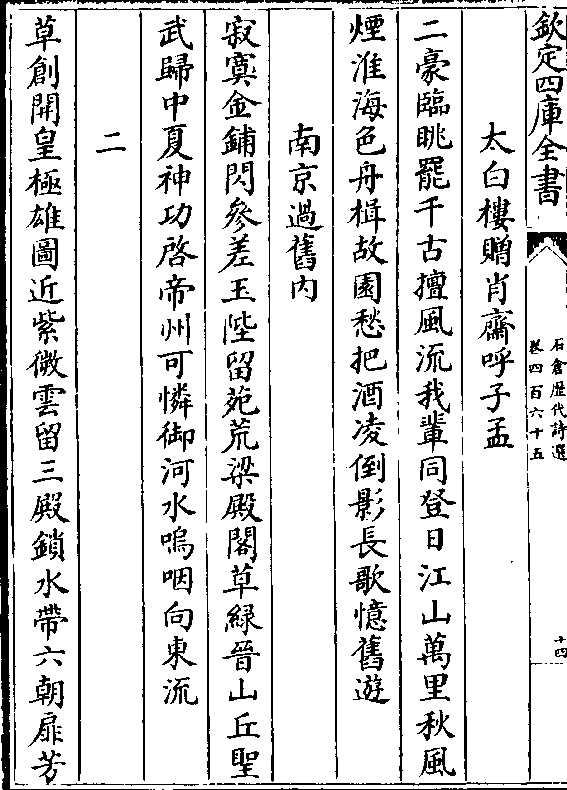 欽定四庫全書
石倉歴代詩選
卷四百六十五
十四
太白樓贈肖齋呼子孟
二豪臨眺罷千古擅風流我輩同登日江山萬里秋風
煙淮海色舟楫故園愁把酒凌倒影長歌憶舊遊
南京過舊内
寂寞金鋪閃參差玉陛留苑荒梁殿閣草緑晉山丘聖
武歸中夏神功啓帝州可憐御河水嗚咽向東流
二
草創開皇極雄圖近紫微雲留三殿鎖水帶六朝扉芳